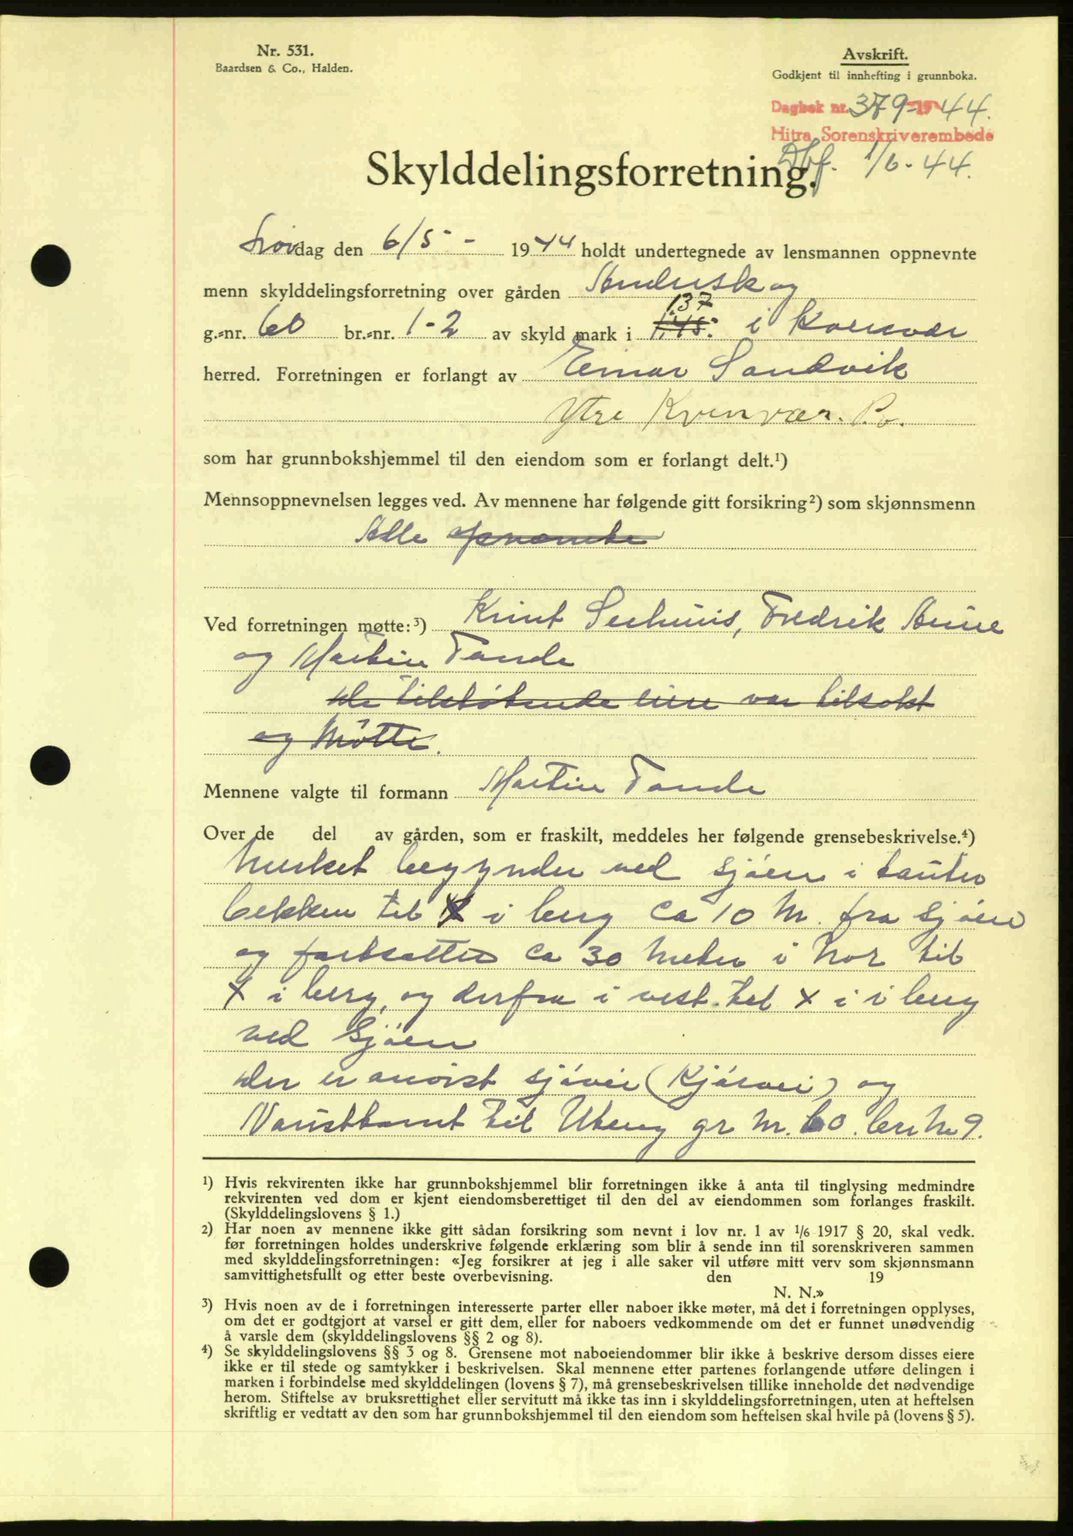 Nr. 531.
Baardsen & Co., Halden.
Avskrift.
Godkjent til innhefting i grunnboka.
Dagbok nr. 379 - 19 44.
Hitra Sorenskriverembede
Dbf. 1/6 - 44.
Skylddelingsforretning.
Lørdag den 6/5 - 1944 holdt undertegnede av lensmannen oppnevnte
menn skylddelingsforretning over gården
g.-nr. 60 br.-nr. 1-2 av skyld mark i 1.37 1.45 i Kvenvær
herred. Forretningen er forlangt av Einar Sandvik
Ytre Kvenvær. P.o.
som har grunnbokshjemmel til den eiendom som er forlangt delt.¹)
Mennsoppnevnelsen legges ved. Av mennene har følgende gitt forsikring²) som skjønnsmenn
Alle opnævnte
Ved forretningen møtte:³) Knut Seehuus, Fredrik Aune
og Martin Tande
de tilstøtende eiere var tilsakt
og Møtte.
Mennene valgte til formann Martin Tande
Over de del av gården, som er fraskilt, meddeles her følgende grensebeskrivelse.⁴)
Merket begynder ved sjøen i
bekken til X i berg ca 10 M. fra sjøen
og fortsetter ca 30 meter i Nor til
X i berg, og derfra i vest til X i i berg
ved Sjøen
der er anvist sjøvei (Kjørvei) og
til Uteng gr Nr. 60. bru Nr 9.
¹) Hvis rekvirenten ikke har grunnbokshjemmel blir forretningen ikke å anta til tinglysing medmindre
rekvirenten ved dom er kjent eiendomsberettiget til den del av eiendommen som forlanges fraskilt.
(Skylddelingslovens § 1.)
²) Har noen av mennene ikke gitt sådan forsikring som nevnt i lov nr. 1 av 1/6 1917 § 20, skal vedk.
før forretningen holdes underskrive følgende erklæring som blir å sende inn til sorenskriveren sammen
med skylddelingsforretningen: «Jeg forsikrer at jeg i alle saker vil utføre mitt verv som skjønnsmann
samvittighetsfullt og etter beste overbevisning. den 19
N. N.»
³) Hvis noen av de i forretningen interesserte parter eller naboer ikke møter, må det i forretningen opplyses,
om det er godtgjort at varsel er gitt dem, eller for naboers vedkommende om det er funnet unødvendig
å varsle dem (skylddelingslovens §§ 2 og 8).
⁴) Se skylddelingslovens §§ 3 og 8. Grensene mot naboeiendommer blir ikke å beskrive dersom disses eiere
ikke er til stede og samtykker i beskrivelsen. Skal mennene etter partenes forlangende utføre delingen i
marken i forbindelse med skylddelingen (lovens § 7), må grensebeskrivelsen tillike inneholde det nødvendige
herom. Stiftelse av bruksrettighet eller servitutt må ikke tas inn i skylddelingsforretningen, uten at heftelsen
skriftlig er vedtatt av den som har grunnbokshjemmel til den eiendom som heftelsen skal hvile på (lovens § 5).